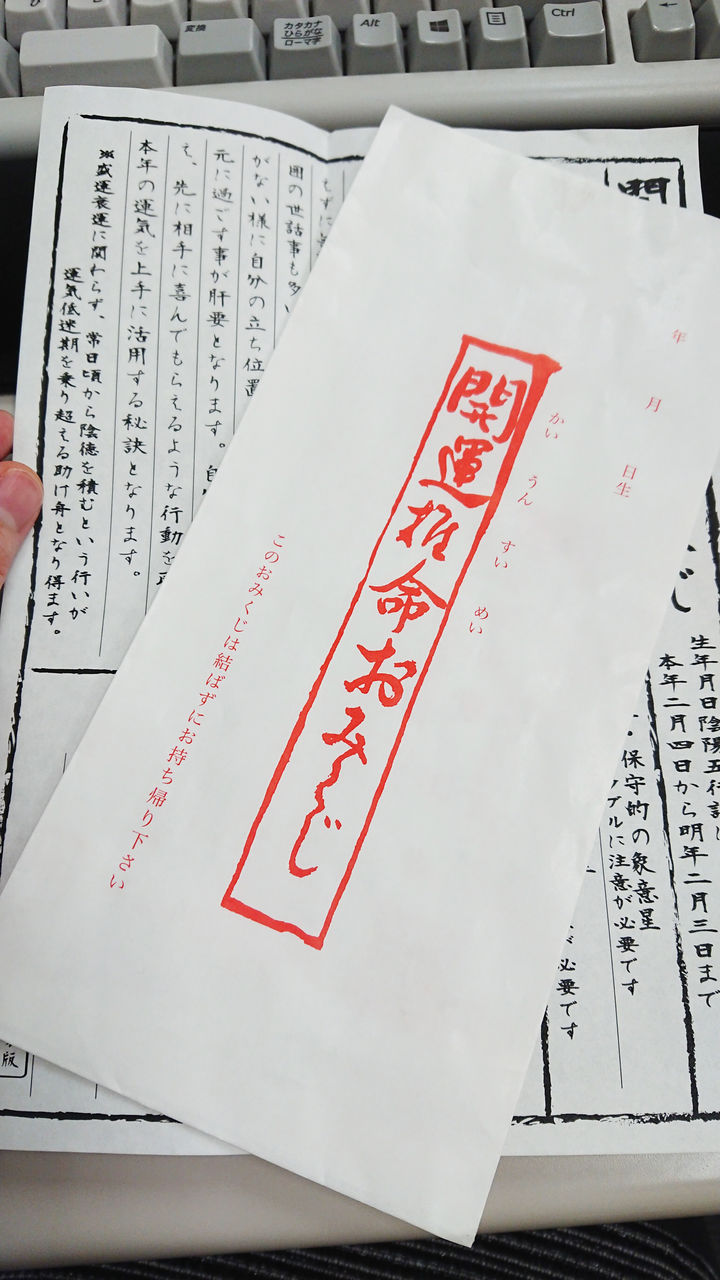 変換
カタカナ
ひらがな
ローマ字
Alt
Ctrl
年
月
日生
開運推命おみくじ
かいうんすいめい
このおみくじは結ばずにお持ち帰り下さい
生年月日陰陽五行
本年二月四日から明年二月三日まで
保守的の象意星
ブルに注意が必要です
必要です
囲の世話事も多い
がない様に自分の立ち位置
元に過ごす事が肝要となります。
え、先に相手に喜んでもらえるような行動を
本年の運気を上手に活用する秘訣となります。
※盛運衰運に関わらず、常日頃から陰徳を積むという行いが
運気低迷期を乗り超える助け舟となり得ます。
版